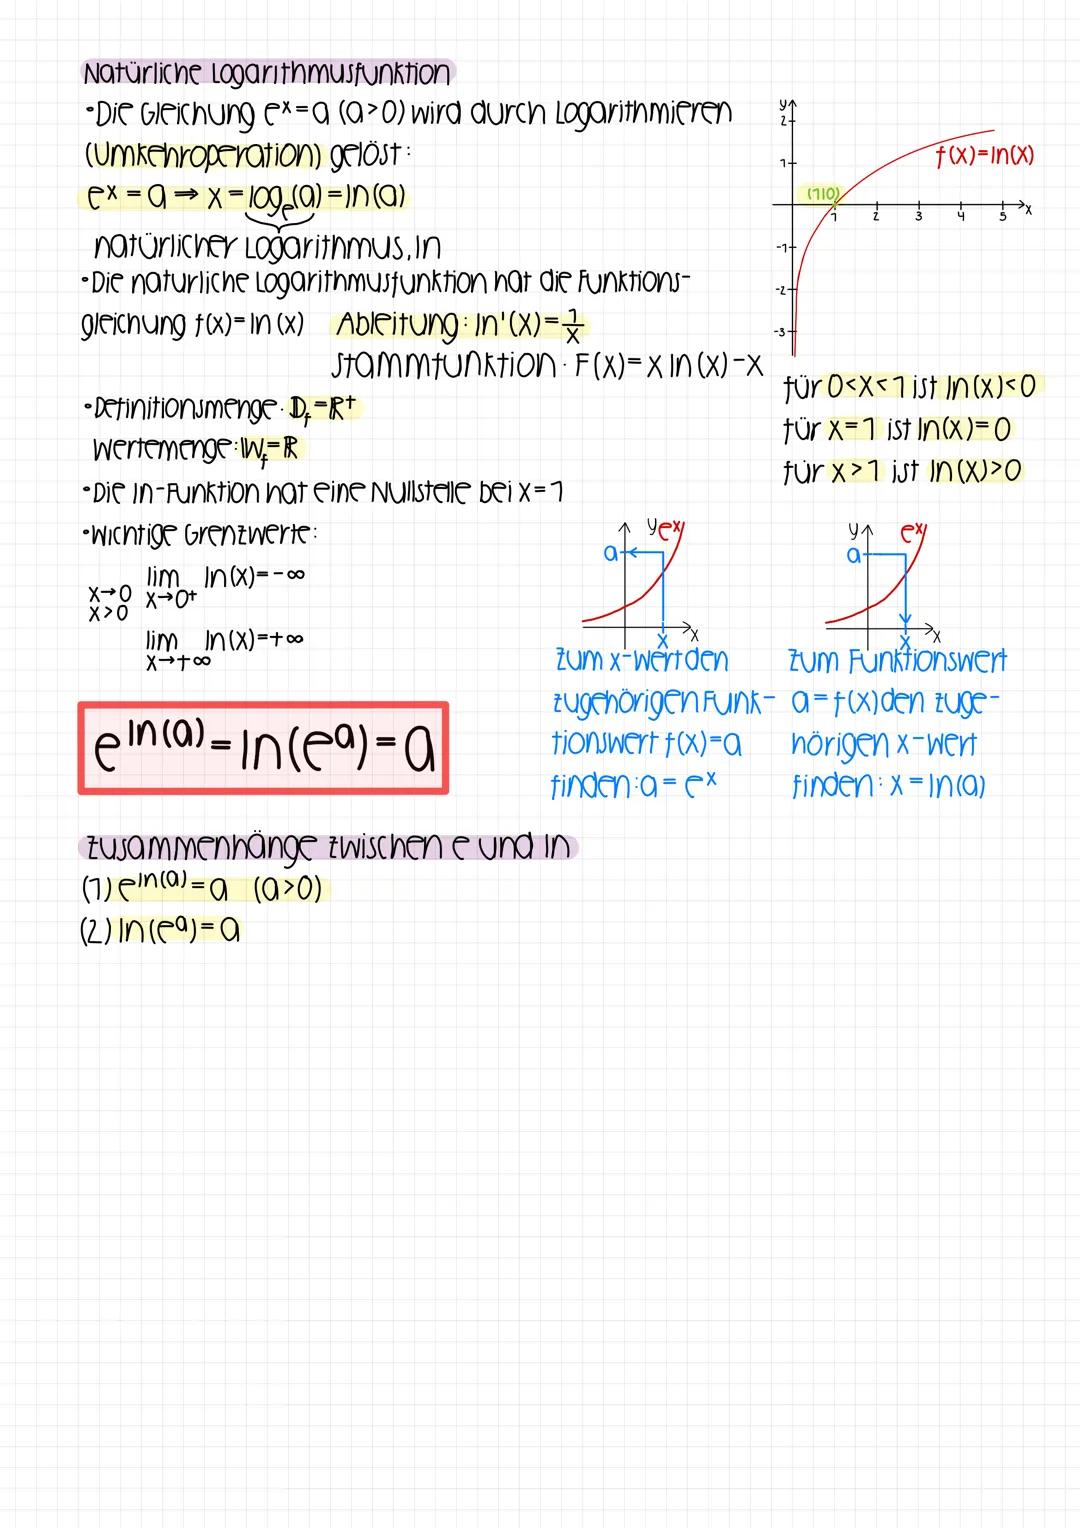 Natürliche Logarithmusfunktion
•Die Gleichung eˣ=a (a>0) wird durch Logarithmieren
(Umkehroperation) gelöst:
eˣ = a ⇒ x = logₑ(a) = ln(a)
natürlicher Logarithmus, ln
•Die natürliche Logarithmusfunktion hat die Funktions-
gleichung f(x)= ln (x) Ableitung: ln'(x)= 1/x
Stammfunktion: F(x)= x ln(x)-x
•Definitionsmenge: 𝔻f=ℝ⁺
Wertemenge: 𝕎f=ℝ
•Die ln-Funktion hat eine Nullstelle bei x=1
•Wichtige Grenzwerte:
x→0
x>0
lim ln(x)= -∞
x→0+
lim ln(x)=+∞
x→+∞
e^ln(a) = ln(e^a) = a
y
2
1
-1
-2
-3
1 2 3 4 5 x
(1|0)
f(x)=ln(x)
für 0<x<1 ist ln(x)<0
für x=1 ist ln(x)=0
für x>1 ist ln(x)>0
y eˣ
a
x x
zum x-Wert den
zugehörigen Funk-
tionswert f(x)=a
finden: a = eˣ
y eˣ
a
x x
zum Funktionswert
a = f(x) den zuge-
hörigen x-Wert
finden: x = ln(a)
Zusammenhänge zwischen e und ln
(1) e^ln(a) = a (a>0)
(2) ln(e^a) = a